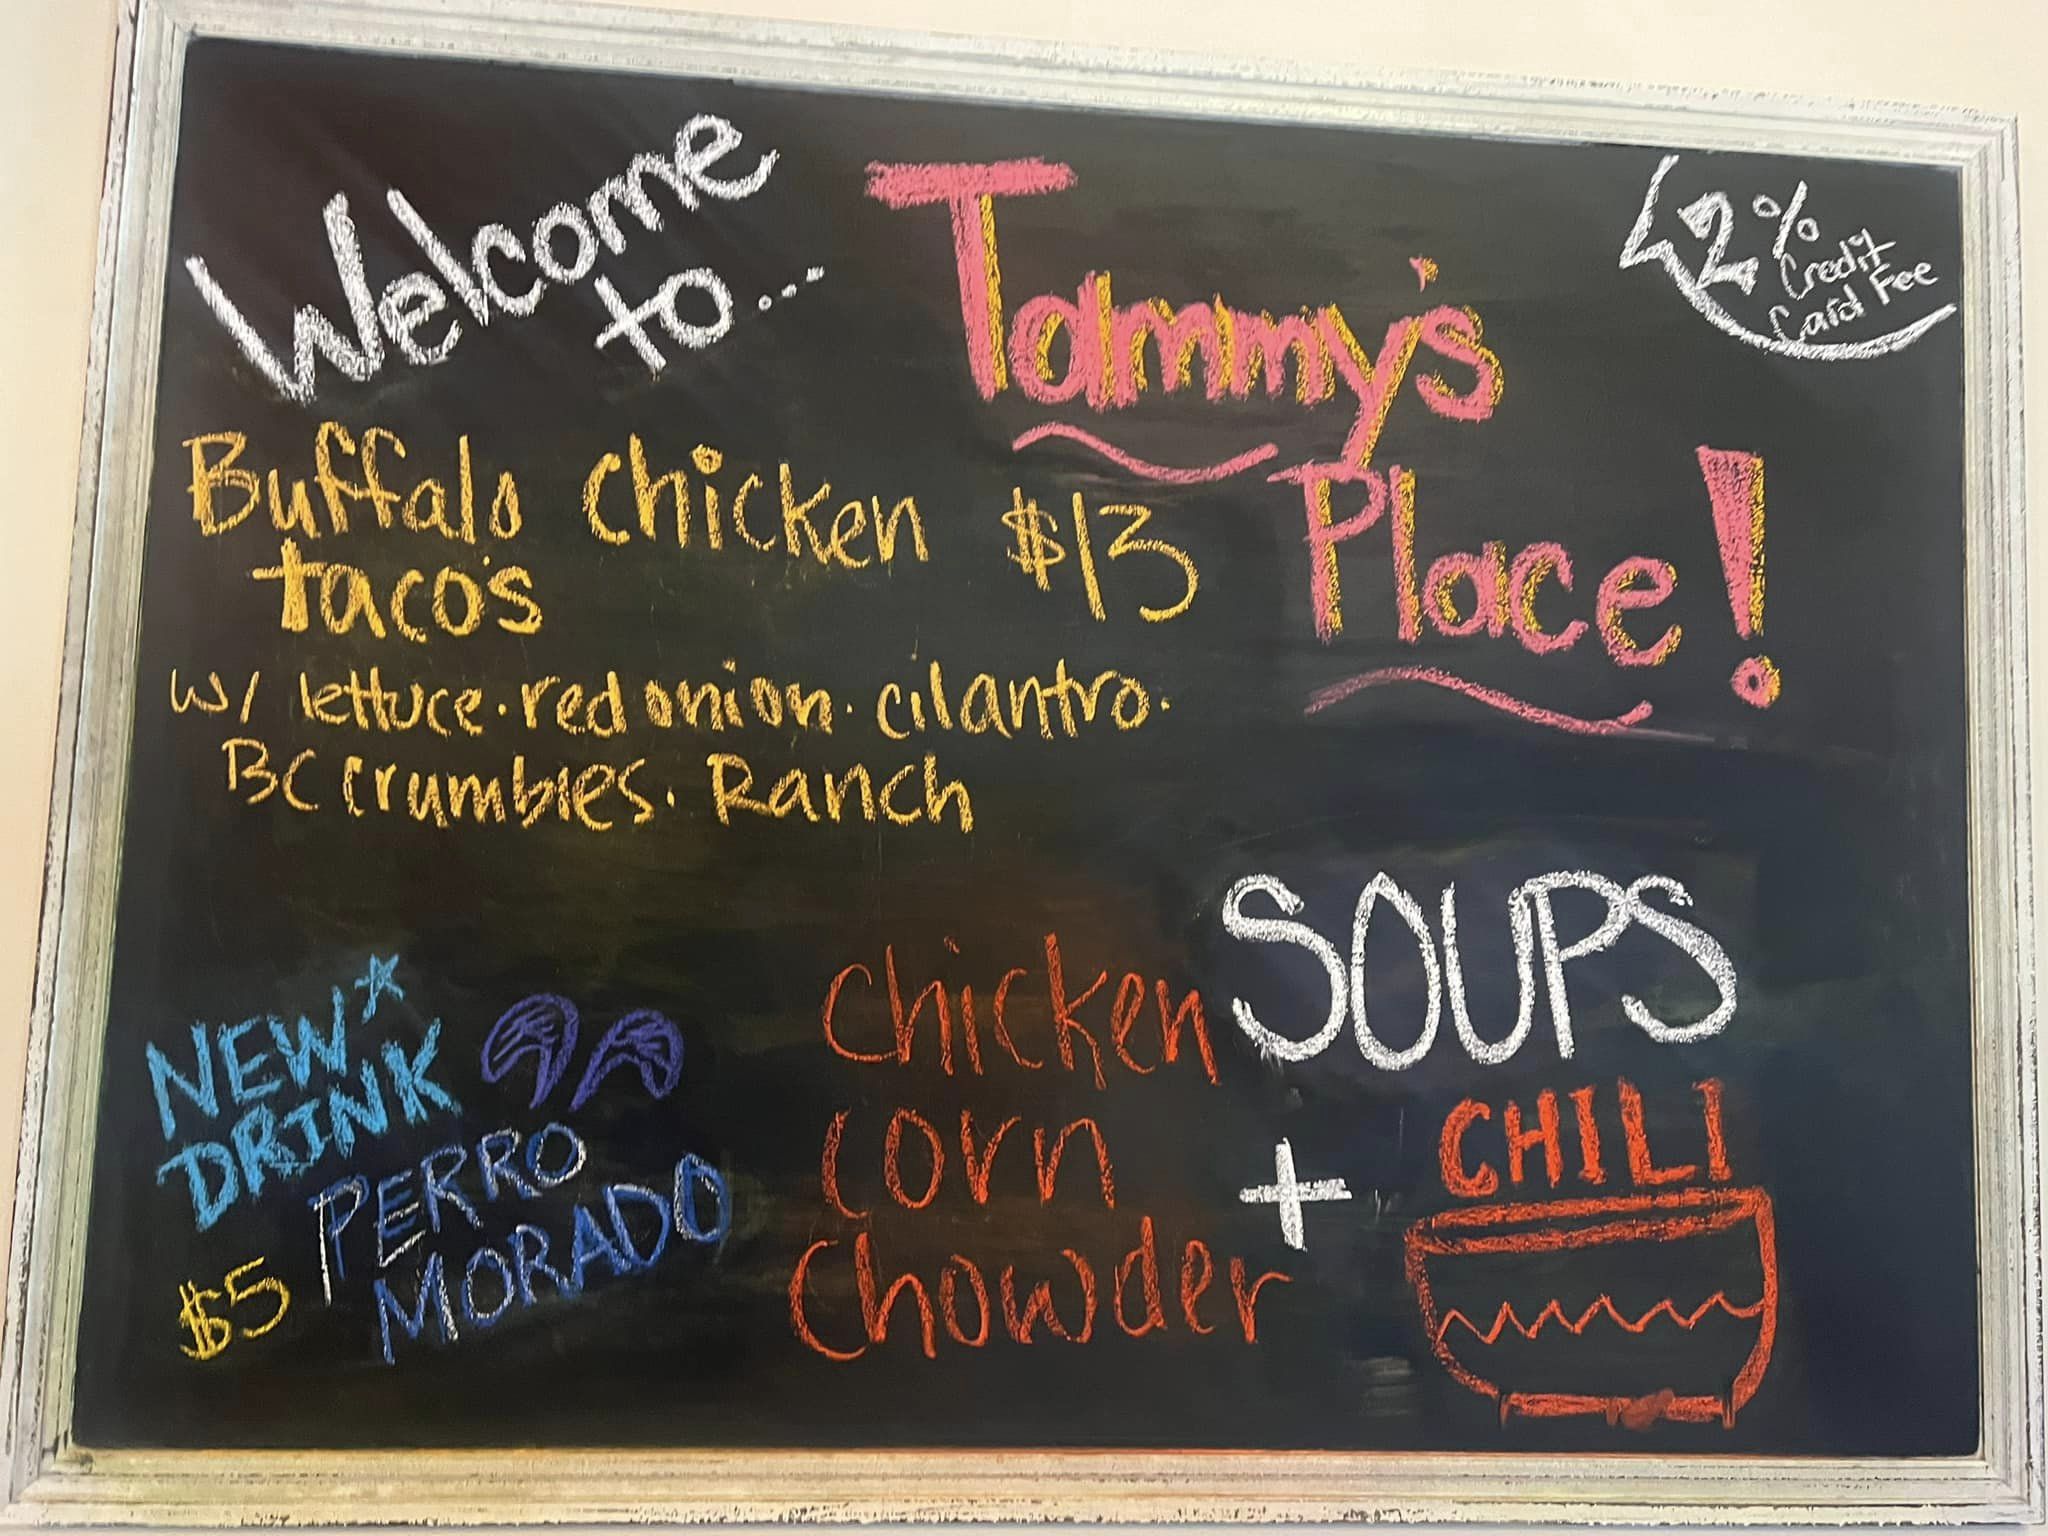 Welcome
to...
Tammy's
Place!
2%
Credit
Card Fee
Buffalo Chicken $13
taco's
w/ lettuce · red onion · cilantro ·
BC crumbles · Ranch
NEW
DRINK
PERRO
MORADO
$5
SOUPS
Chicken
corn
Chowder
+
CHILI